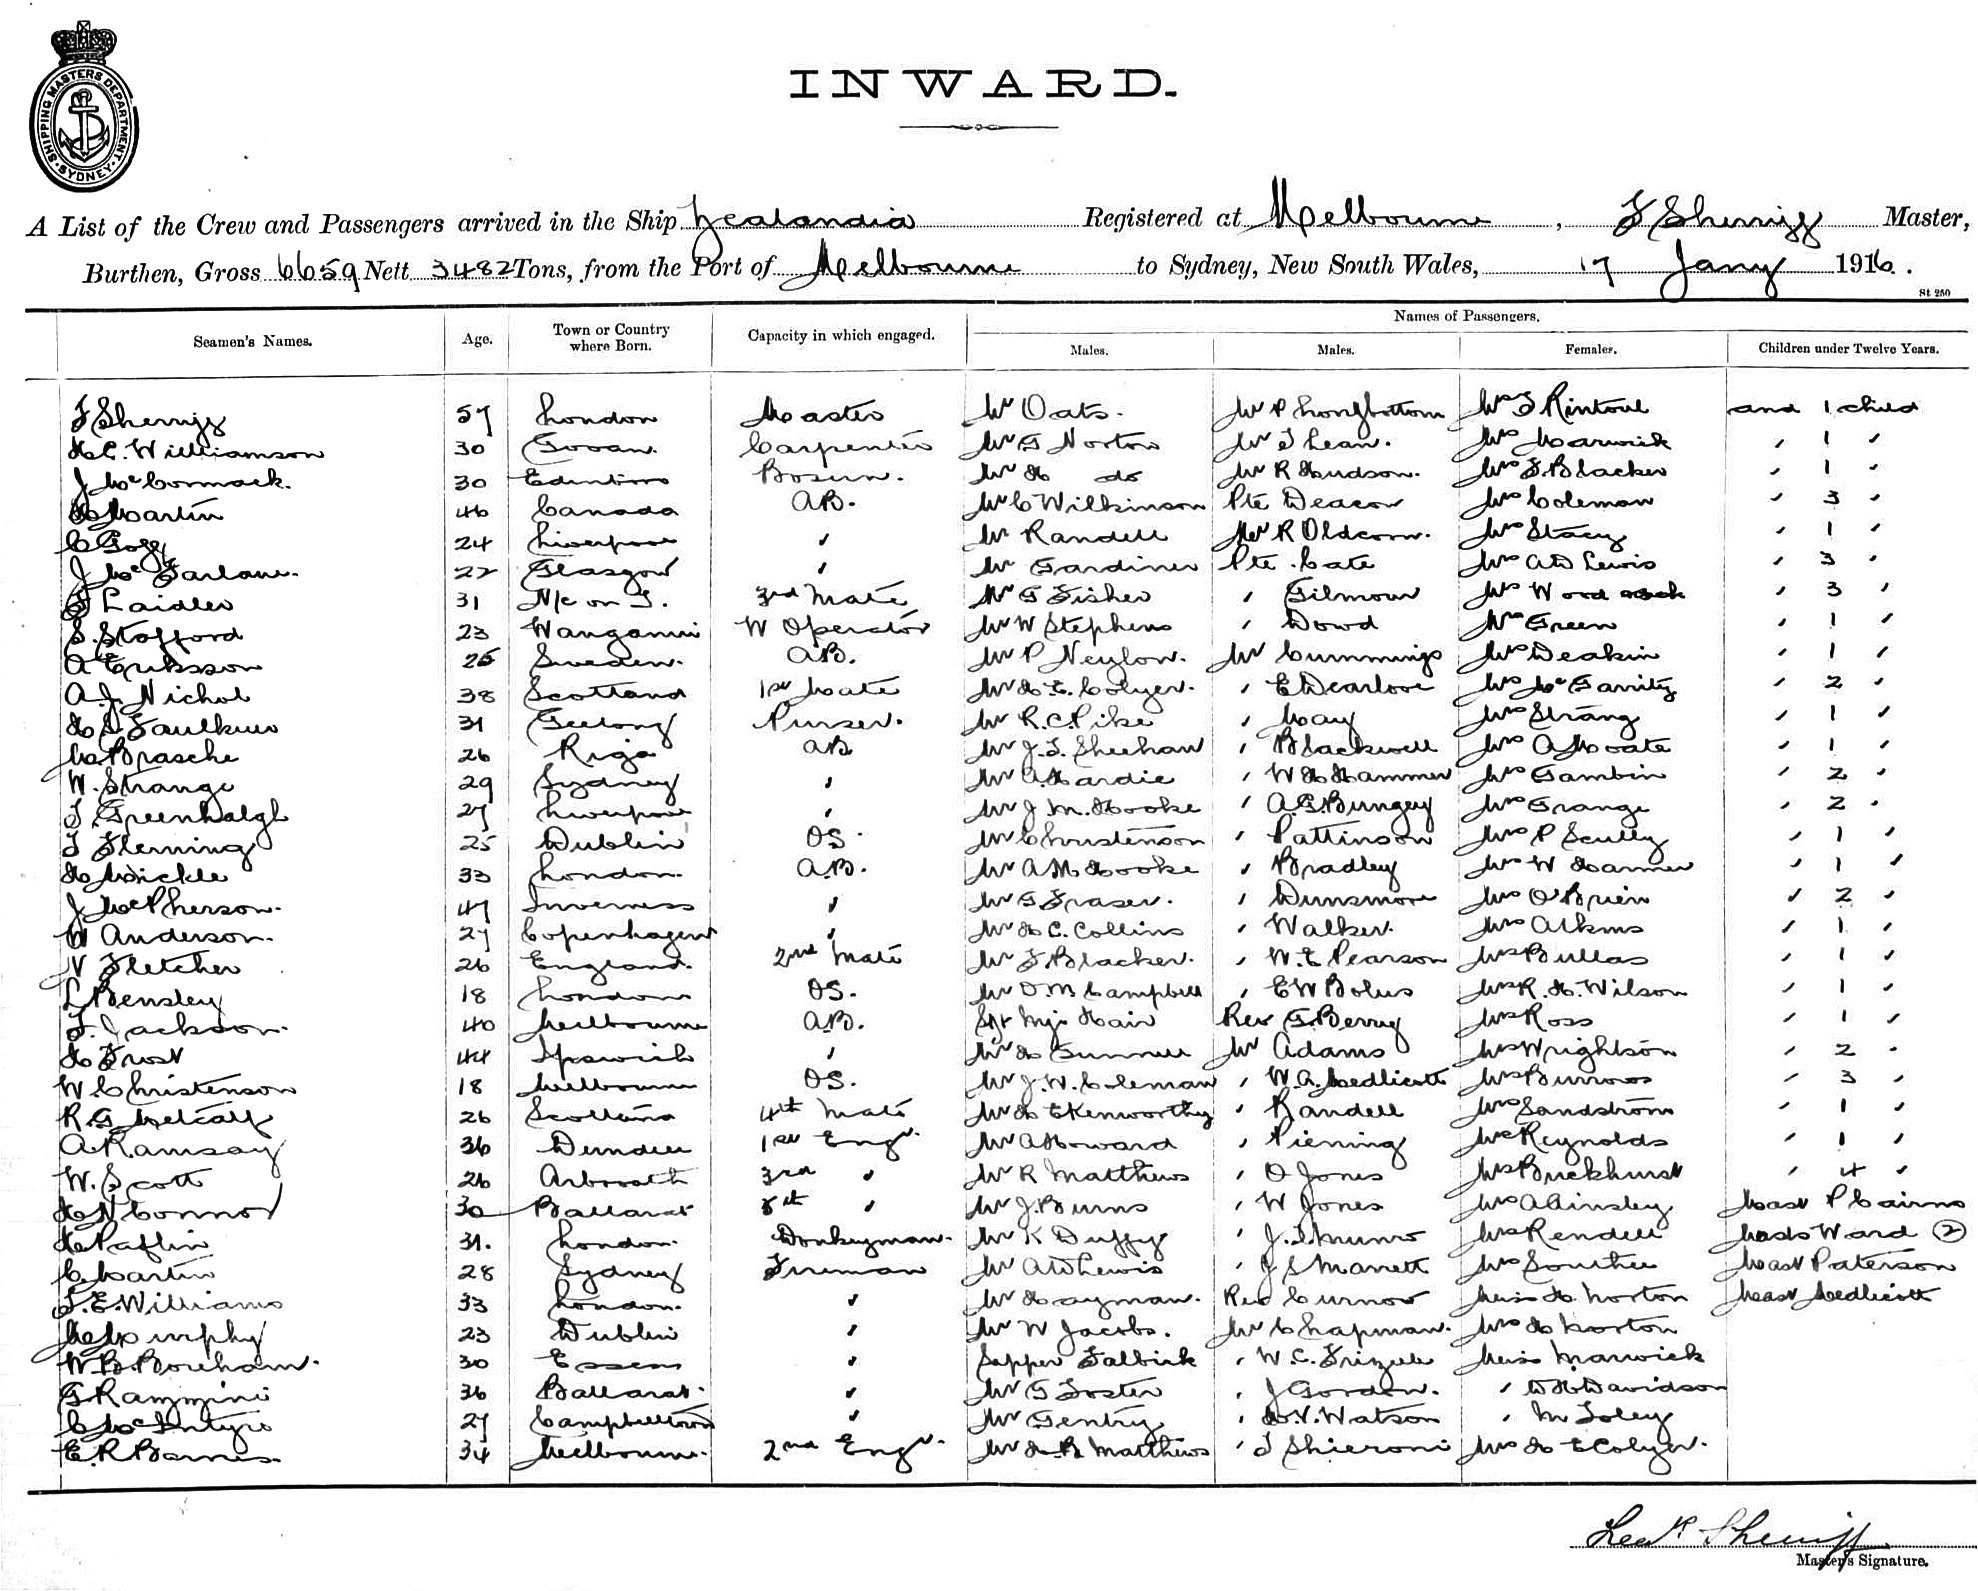 SHIPPING MASTERS DEPARTMENT. SYDNEY
INWARD.
A List of the Crew and Passengers arrived in the Ship Zealandia Registered at Melbourne, F Sherriff Master,
Burthen, Gross 6659 Nett 3482 Tons, from the Port of Melbourne to Sydney, New South Wales, 17 Jany 1916.
St 250
Names of Passengers.
Seamen's Names. Age. Town or Country where Born. Capacity in which engaged. Males. Males. Females. Children under Twelve Years.
F Sherriff 57 London Master Mr Oats. Mr P Longbottom Mrs F Rintoul and 1 child
H C. Williamson 30 Govan. Carpenter Mr G Norton Mr T Lean. Mrs Marwick " 1 "
J McCormack. 30 Edinboro Bosun. Mr H do Mr R Hudson. Mrs F Blacker " 1 "
H Martin 46 Canada AB. Mr C Wilkinson Pte Deacon Mrs Coleman " 3 "
C Gogg 24 Liverpool " Mr Randell Mr R Oldcorn. Mrs Stacy " 1 "
J McFarlane. 22 Glasgow " Mr Gardiner Pte Cate Mrs A W Lewis " 3 "
J Laidler 31 N/c on T. 3rd Mate Mr G Fisher " Gilmour Mrs Wood " 3 "
S. Stafford 23 Wanganui W Operator Mr W Stephens " Dowd Mrs Green " 1 "
A Eriksson 25 Sweden. AB. Mr P Neylon. Mr Cummings Mrs Deakin " 1 "
A. J. Nichol 38 Scotland 1st Mate Mr H E. Colyer. " E Dearlove Mrs McGarrity " 2 "
H S Faulkner 31 Geelong Purser. Mr R. C. Pike " May Mrs Strang " 1 "
M Brasche 26 Riga AB Mr J. F. Sheehan " Blackwell Mrs A Moate " 1 "
W. Strange 29 Sydney " Mr A. Hardie " W H Hammer Mrs Gambin " 2 "
T. Greenhalgh 27 Liverpool " Mr J. M. Hooke " A. G. Bungey Mrs Grange " 2 "
T Fleming 25 Dublin OS. Mr Christenson " Pattinson Mrs P Scully " 1 "
H Mickle 33 London. A.B. Mr A M Hooke " Bradley Mrs W Hammer " 1 "
J McPherson. 47 Inverness " Mr G Fraser. " Dunsmore Mrs O'Brien " 2 "
W Anderson. 27 Copenhagen " Mr H C. Collins " Walker. Mrs Atkins " 1 "
N Fletcher 26 England. 2nd Mate Mr F Blacker. " W. E Pearson Mrs Bullas " 1 "
L Bensley 18 London OS. Mr D. M Campbell " E W Bolus Mrs R. H. Wilson " 1 "
T. Jackson. 40 Melbourne A.B. Sgt Mjr Hair Rev G. Berry Mrs Ross " 1 "
H Frost 44 Ipswich " Mr H Gunnell Mr Adams Mrs Wrightson " 2 "
W. Christenson 18 Melbourne OS. Mr J. W. Coleman " W. A. Medlicott Mrs Burrows " 3 "
R. G Metcalf 26 Scotland 4th Mate Mr H E Kenworthy " Randell Mrs Sandstrom " 1 "
A Ramsay 36 Dundee 1st Engr. Mr A Howard " Piening Mrs Reynolds " 1 "
W. Scott 26 Arbroath 3rd " Mr R Matthews " O Jones Mrs Brickhurst " 4 "
H N Connor 30 Ballarat 8th " Mr J. Burns " W Jones Mrs A Ainsley Mast P Cairns
H Paflin 31. London. Donkeyman. Mr K Duffy " J. T. Munro Mrs Rendell Masts Ward (2)
C. Martin 28 Sydney Fireman Mr A W Lewis " J S Marrett Mrs Southee Mast Paterson
T. E. Williams 33 London. " Mr Hayman. Rev Curnow Miss H Norton Mast Medlicott
M Murphy 23 Dublin " Mr W Jacobs. Mr Chapman. Mrs H Norton
W. B. Boreham. 30 Essex " Sapper Talbirk " W. C. Frizelle Miss Marwick
G Razzini 36 Ballarat. " Mr G Foster " J Gordon. " D H Davidson
C McIntyre 27 Campbelltown " Mr Gentry " W. Watson " M Foley
E. R Barnes. 34 Melbourne. 2nd Engr. Mr H. B Matthews " T Shieroni Mrs H E Colyer.
Fredk Sherriff
Master's Signature.